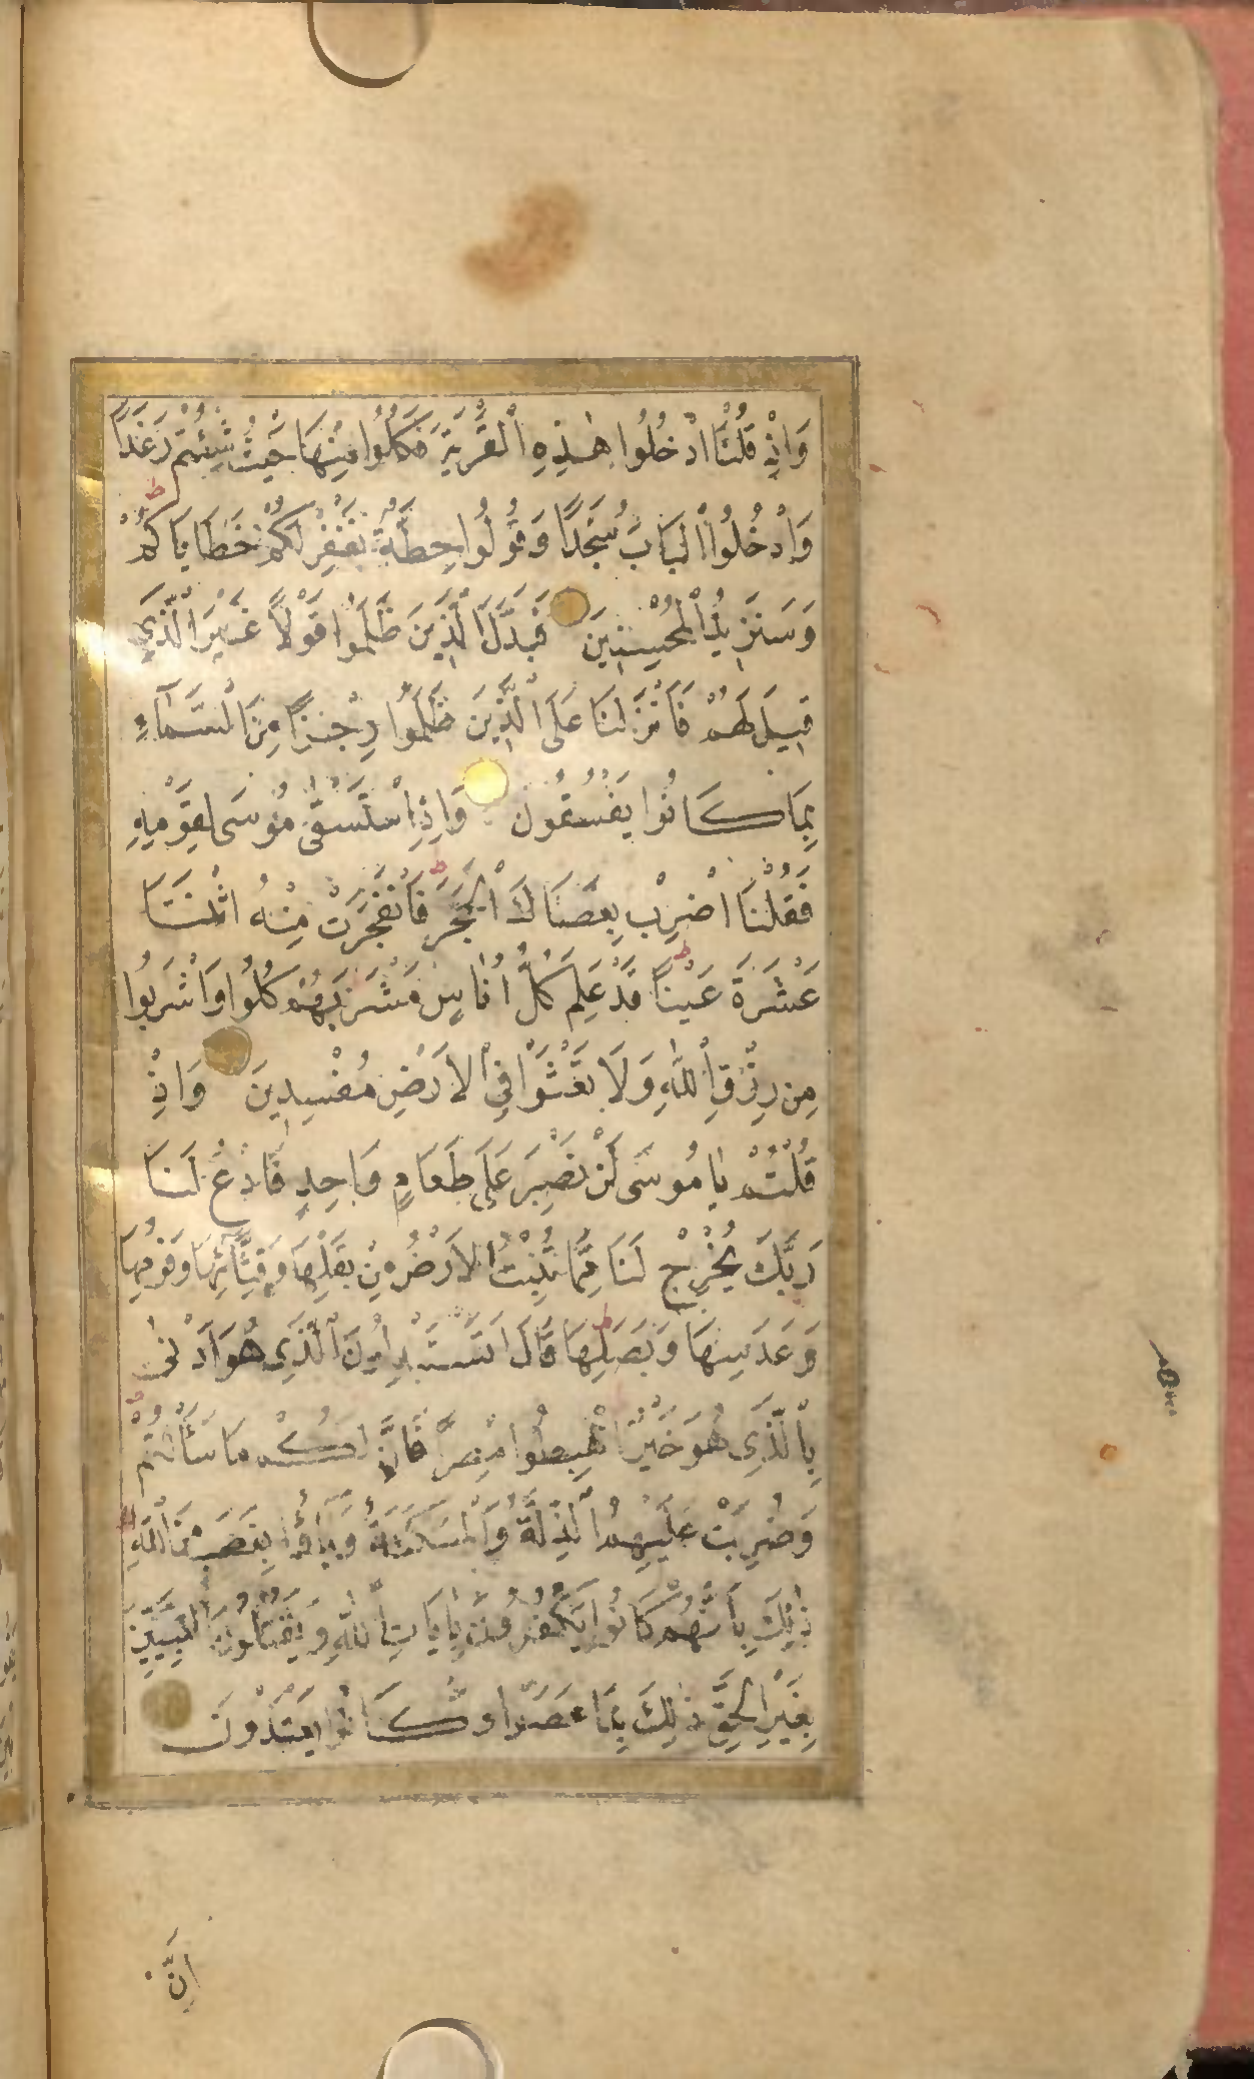 وَاِذْ قُلْنَا ادْخُلُوا هٰذِهِ الْقَرْيَةَ فَكُلُوا مِنْهَا حَيْثُ شِئْتُمْ رَغَدًا
وَادْخُلُوا الْبَابَ سُجَّدًا وَقُولُوا حِطَّةٌ نَغْفِرْ لَكُمْ خَطَايَاكُمْ ط
وَسَنَزِيدُ الْمُحْسِنِينَ فَبَدَّلَ الَّذِينَ ظَلَمُوا قَوْلًا غَيْرَ الَّذِي
قِيلَ لَهُمْ فَاَنْزَلْنَا عَلَى الَّذِينَ ظَلَمُوا رِجْزًا مِنَ السَّمَاءِ
بِمَا كَانُوا يَفْسُقُونَ وَاِذِ اسْتَسْقٰى مُوسَى لِقَوْمِهِ
فَقُلْنَا اضْرِبْ بِعَصَاكَ الْحَجَرَ ط فَانْفَجَرَتْ مِنْهُ اثْنَتَا
عَشْرَةَ عَيْنًا ط قَدْ عَلِمَ كُلُّ اُنَاسٍ مَشْرَبَهُمْ كُلُوا وَاشْرَبُوا
مِن رِزْقِ اللّٰهِ وَلَا تَعْثَوْا فِي الْاَرْضِ مُفْسِدِينَ وَاِذْ
قُلْتُمْ يَا مُوسَى لَنْ نَصْبِرَ عَلَى طَعَامٍ وَاحِدٍ فَادْعُ لَنَا
رَبَّكَ يُخْرِجْ لَنَا مِمَّا تُنْبِتُ الْاَرْضُ مِنْ بَقْلِهَا وَقِثَّائِهَا وَفُومِهَا
وَعَدَسِهَا وَبَصَلِهَا ط قَالَ اَتَسْتَبْدِلُونَ الَّذِي هُوَ اَدْنٰى
بِالَّذِي هُوَ خَيْرٌ اهْبِطُوا مِصْرًا فَاِنَّ لَكُمْ مَا سَأَلْتُمْ
وَضُرِبَتْ عَلَيْهِمُ الذِّلَّةُ وَالْمَسْكَنَةُ وَبَاؤُا بِغَضَبٍ مِنَ اللّٰهِ
ذٰلِكَ بِاَنَّهُمْ كَانُوا يَكْفُرُونَ بِاٰيَاتِ اللّٰهِ وَيَقْتُلُونَ النَّبِيِّينَ
بِغَيْرِ الْحَقِّ ذٰلِكَ بِمَا عَصَوْا وَكَانُوا يَعْتَدُونَ
اِنَّ